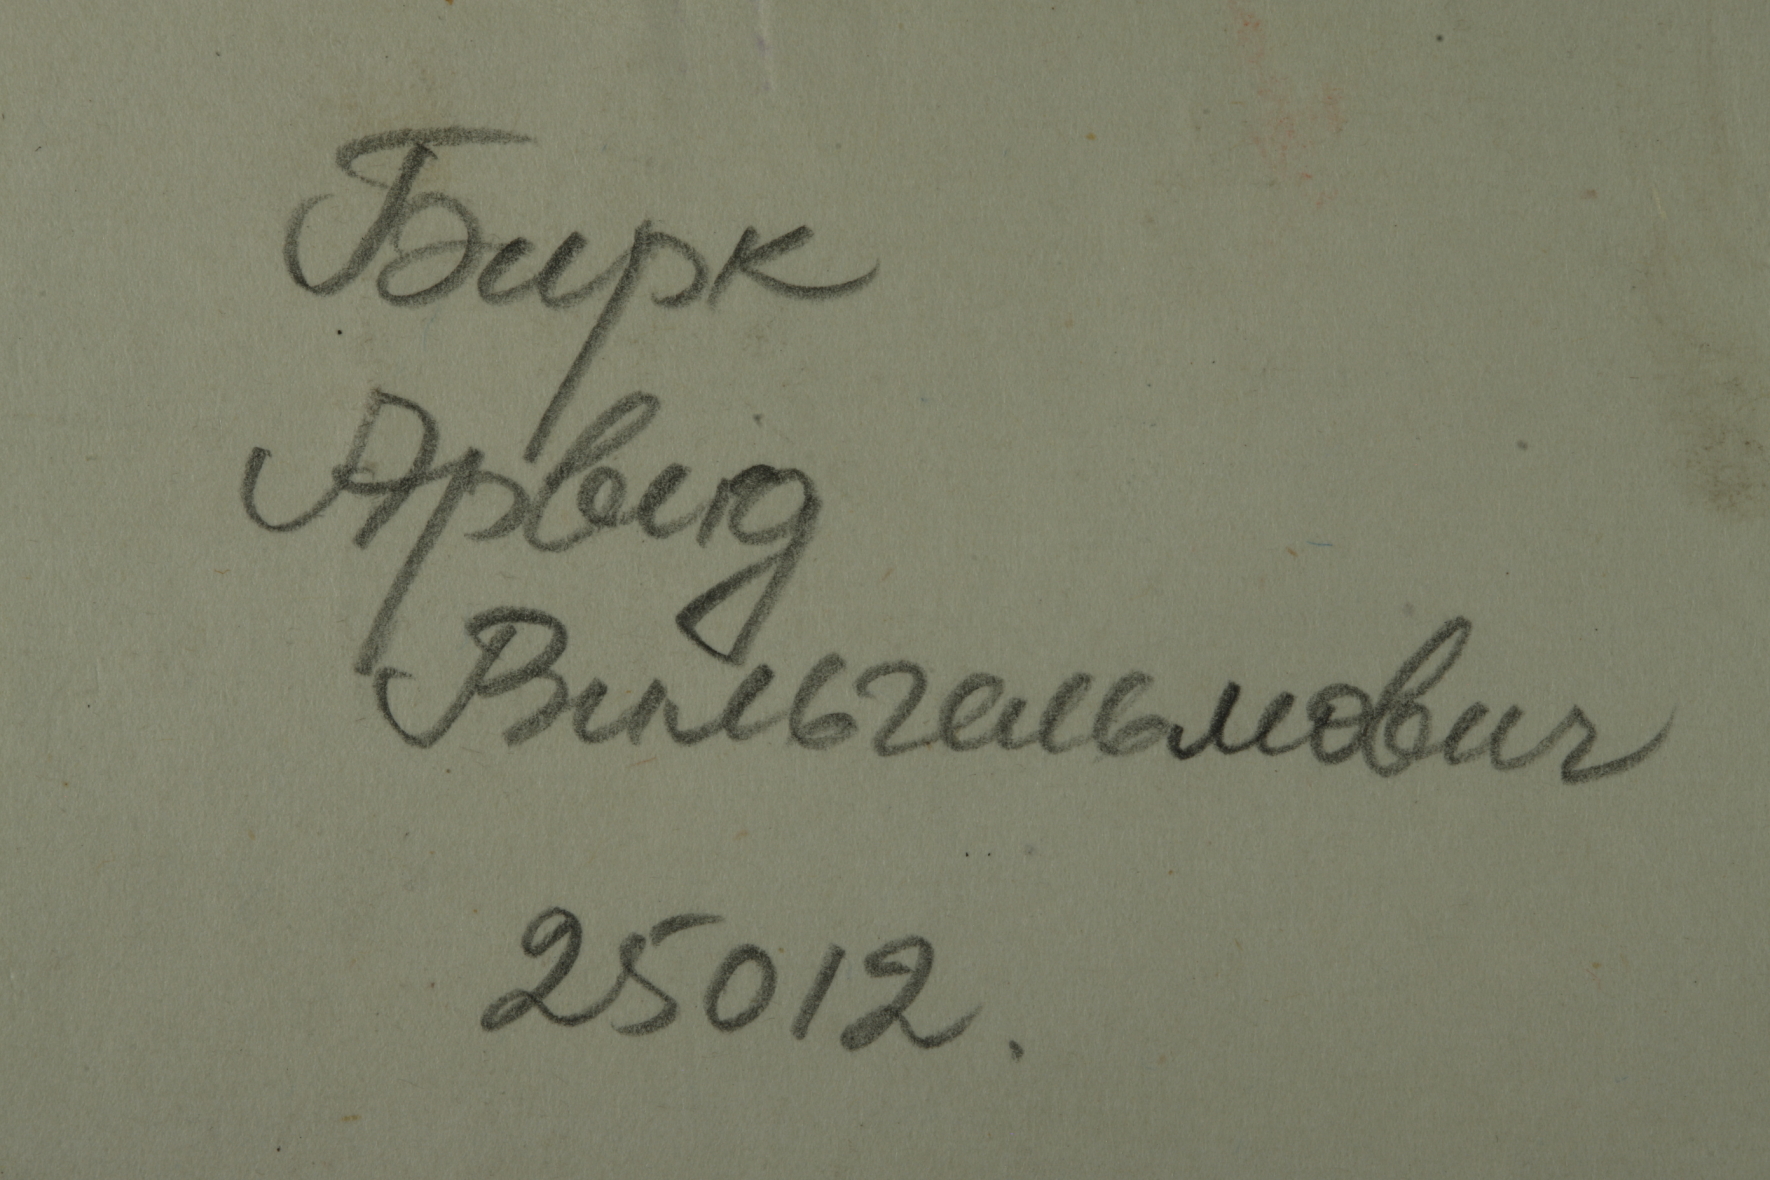 Бирк
Арвид
Вильгельмович
25012.